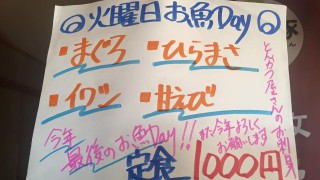 火曜日お魚Day
・まぐろ ・ひらまさ
・イワシ ・甘えび
とんかつ屋さんのお刺身
今年
最後のお魚Day!! また今年よろしく
お願いします
定食 1000円